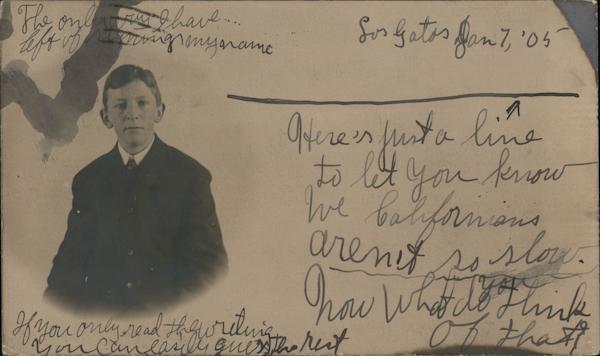 The only way I have...
left of signing my name
Los Gatos Jan 7, '05
Here's just a line
to let you know
We Californians
aren't so slow.
Now what do you think
of that?
If you only read the writing
You can easily guess the rest